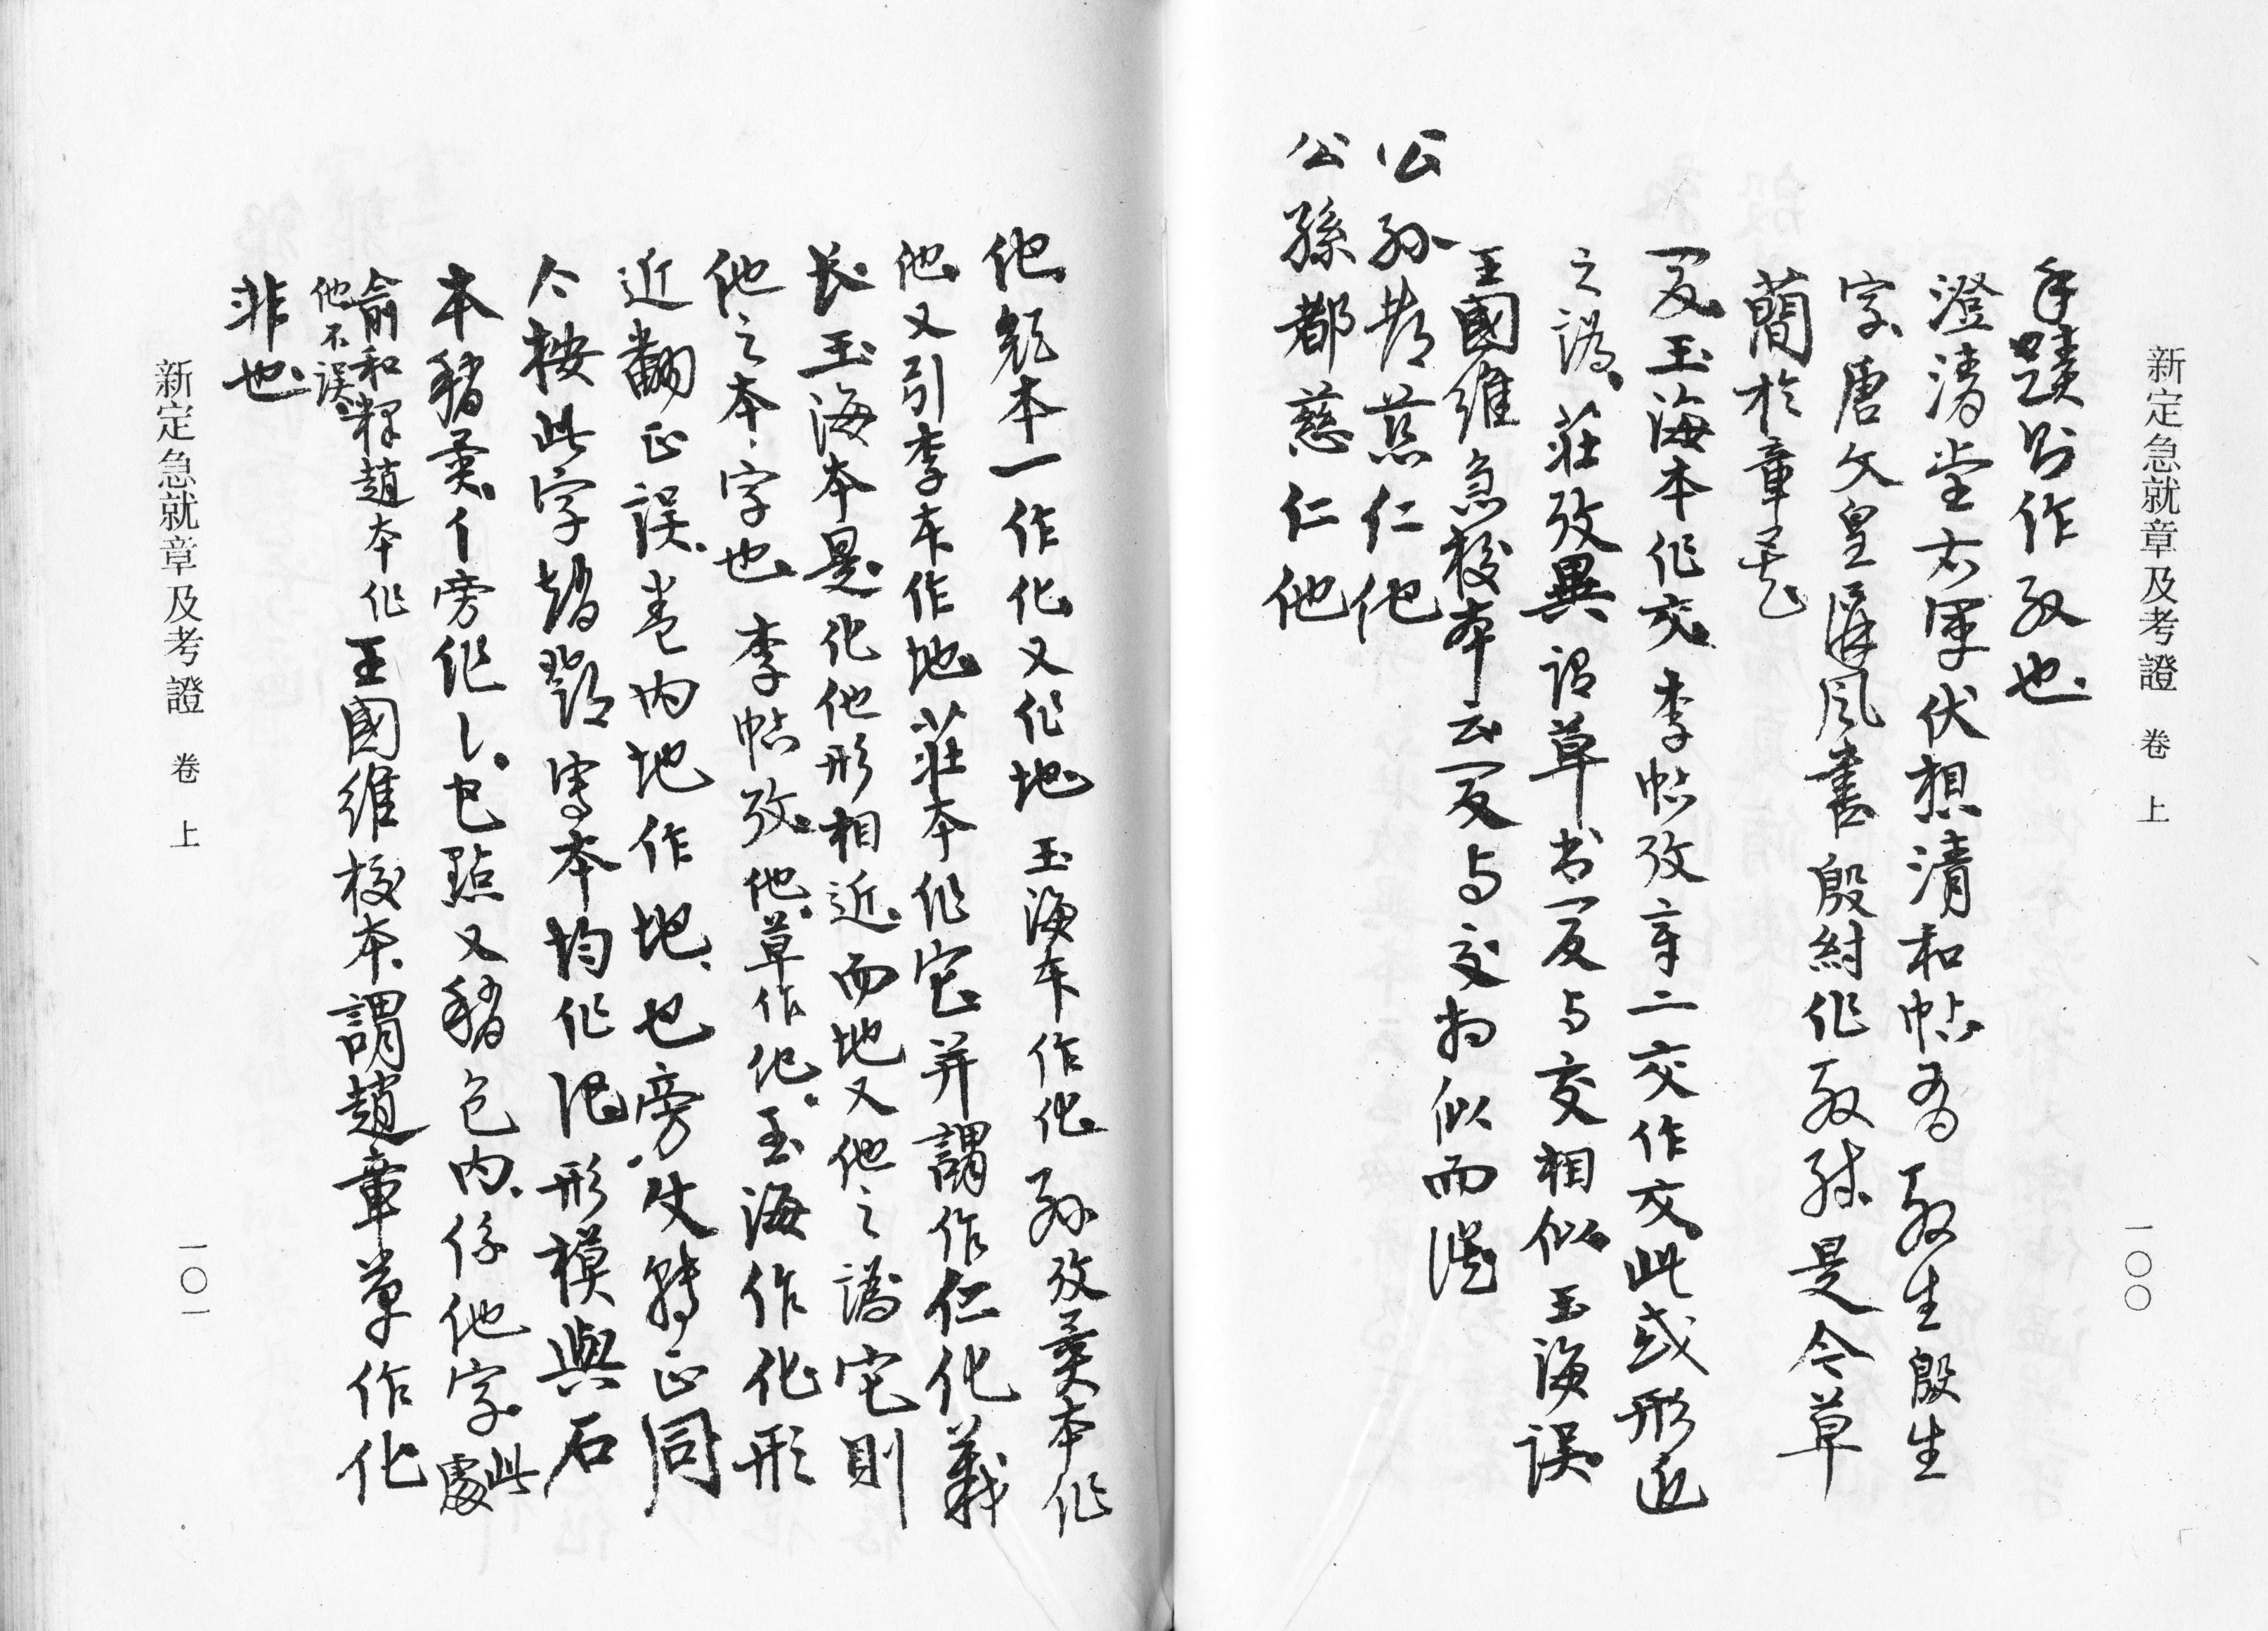 新定急就章及考證 卷上
一〇〇
手蹟别作殷也
澄清堂右軍伏想清和帖為殷生殷生
字唐文皇屏風書殷紂作殷殊是今草
蕳於章草
爰玉海本作交李帖攷章二交作交此或形近
之譌莊攷異謂草书爰与交相似玉海誤
王國維急校本云爰与交相似而譌
公孙都慈仁他
公孫都慈仁他
他顔本一作化又作地玉海本作化孙攷異本作
他又引李本作地莊本作它并謂作仁化義
长玉海本是化他形相近而地又他之譌它則
他之本字也李帖攷他草作化玉海作化形
近翻正誤卷内地作地也旁攴轉正同
今按此字趙鄧寫本均作他形模與石
本稍異亻旁作乚也點又稍包内係他字此處
俞和釋趙本作他不誤王國維校本謂趙章草作化
非也
新定急就章及考證 卷上
一〇一